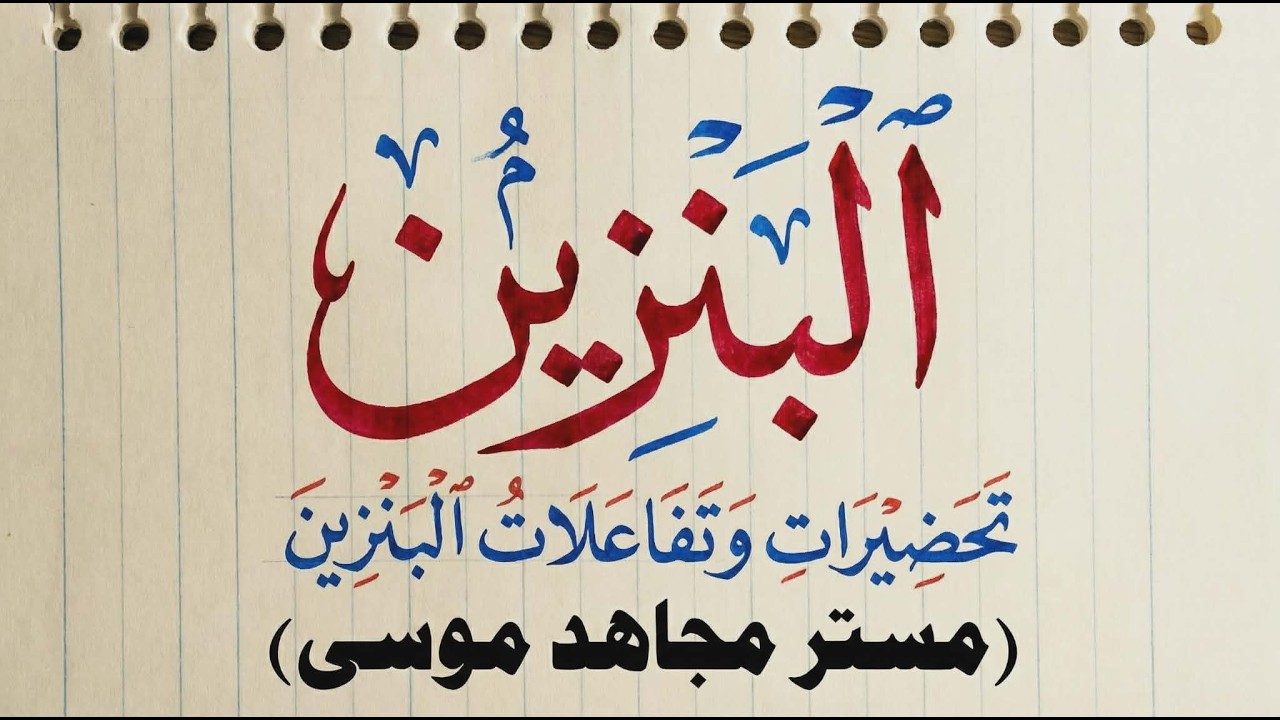 ٱلْبَنْزِينُ
تَحَضِيْرَاتِ وَتَفَاعَلَاتُ ٱلْبَنْزِينَ
(مستر مجاهد موسى)